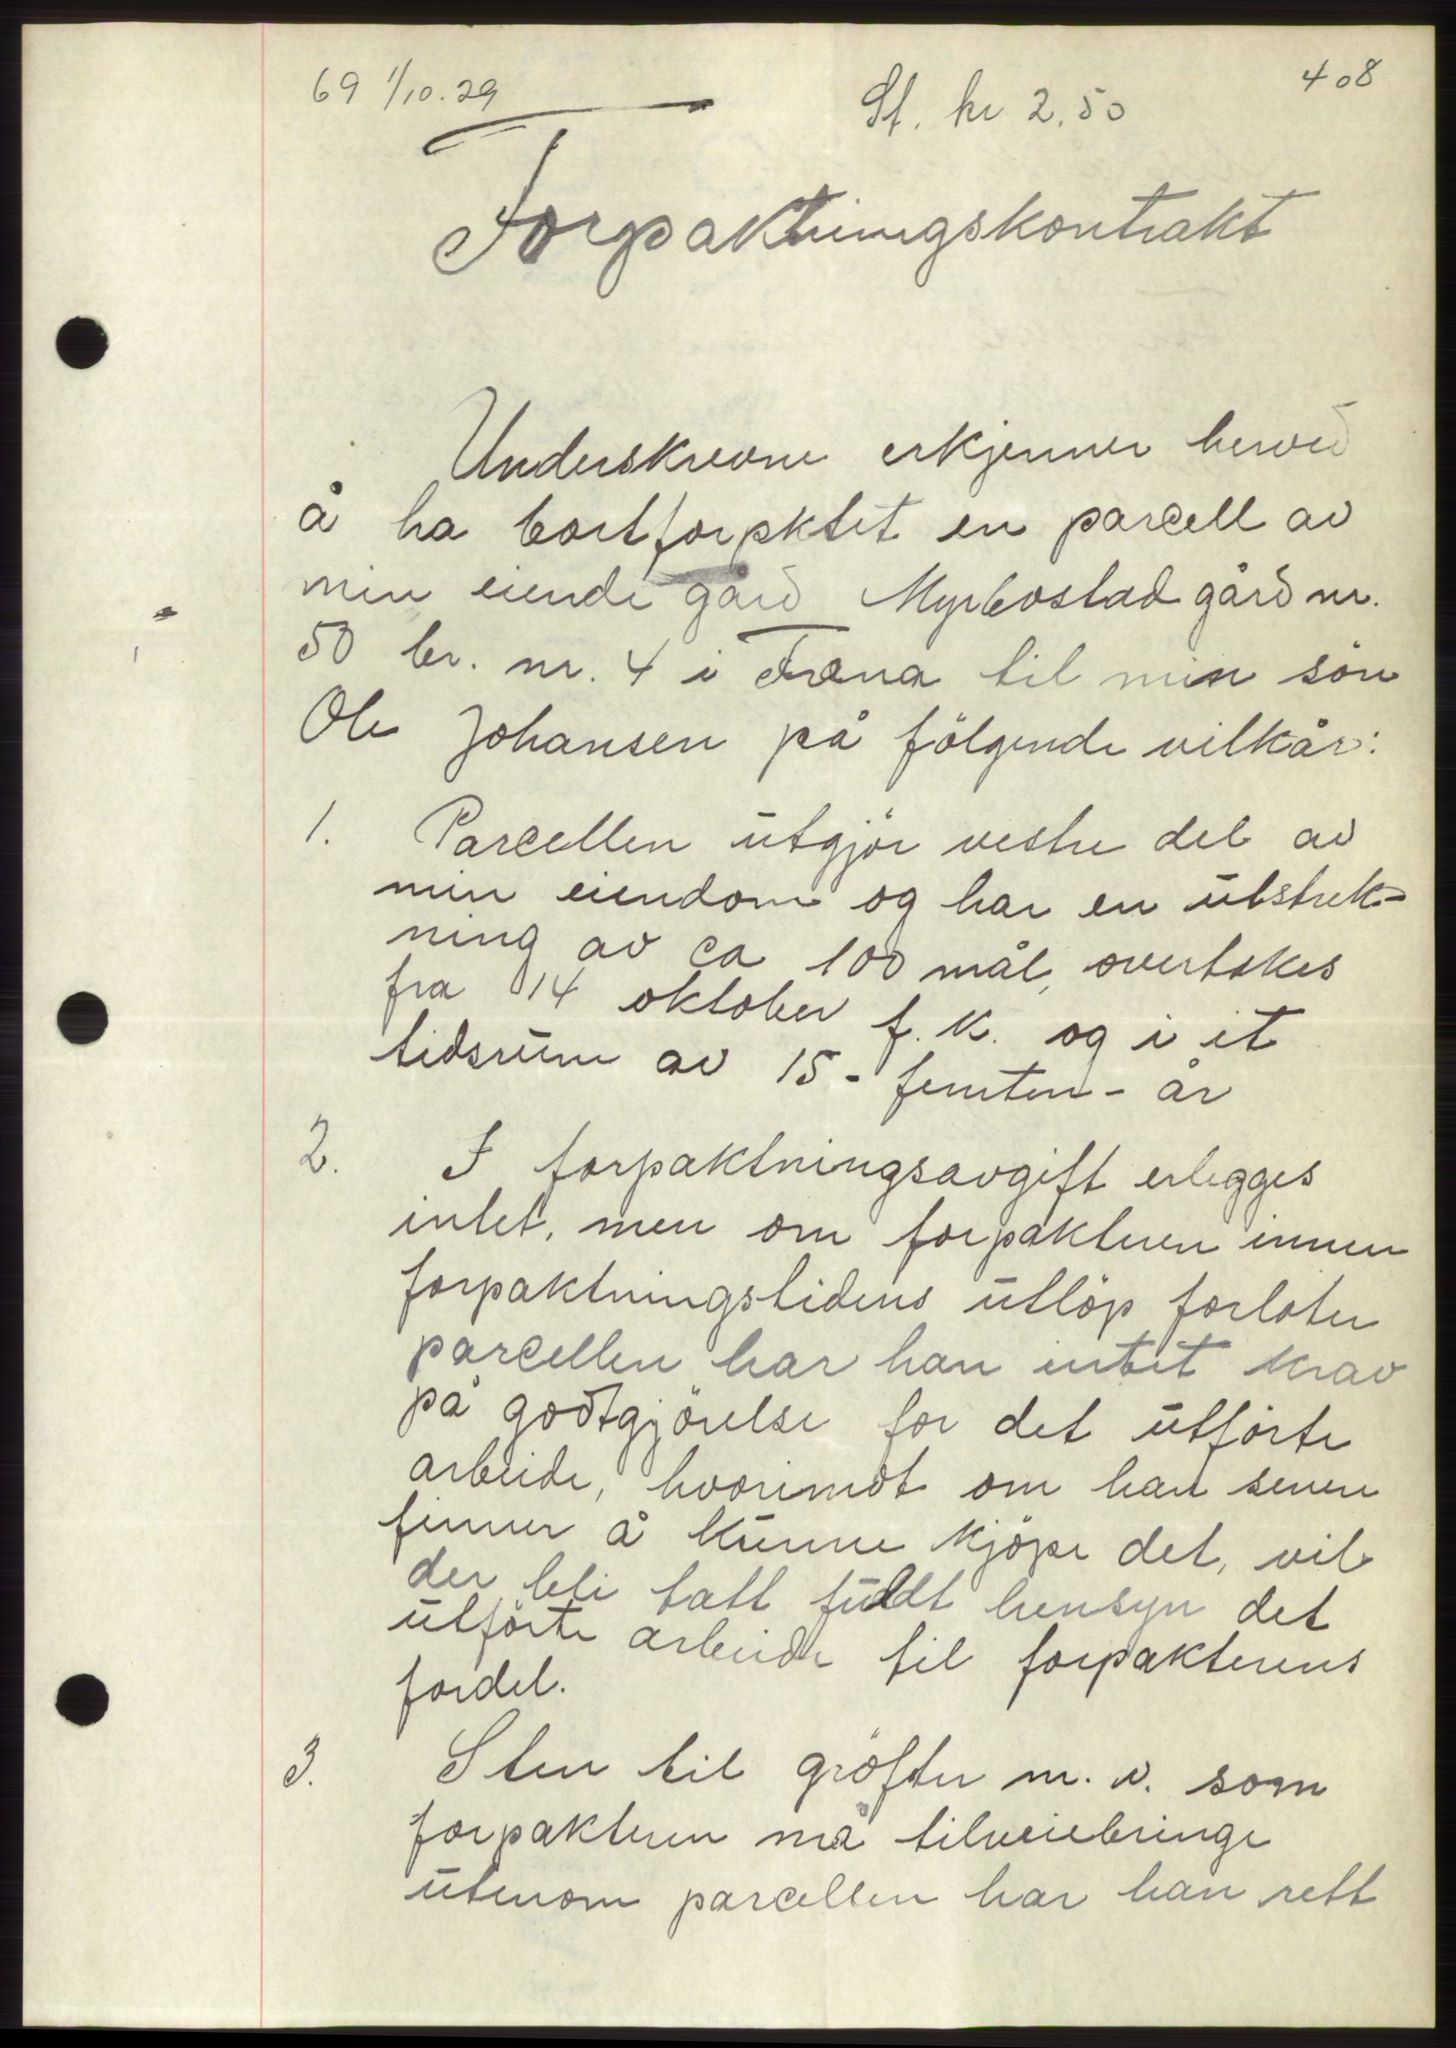 69 1/10.29
St. kr 2.50
408
Forpaktningskontrakt
Underskrevne erkjenner herved
å ha bortforpktet en parcell av
min eiende gård Myrbostad gård nr.
50 br. nr. 4 i Fræna til min sön
Ole Johansen på fölgende vilkår:
1. Parcellen utgjör vestre del av
min eiendom og har en utstrek-
ning av ca 100 mål, overtakes
fra 14 oktober f. k. og i et
tidsrum av 15 - femten - år
2. I forpaktningsavgift erlegges
intet, men om forpakteren innen
forpaktningstidens utlöp forlater
parcellen har han intet krav
på godtgjörelse for det utförte
arbeide, hvorimot om han senere
finner å kunne kjöpe det, vil
der bli tatt fuldt hensyn det
utförte arbeide til forpakterens
fordel.
3. Sten til gröfter m. v. som
forpakteren må tilveiebringe
utenom parcellen har han rett